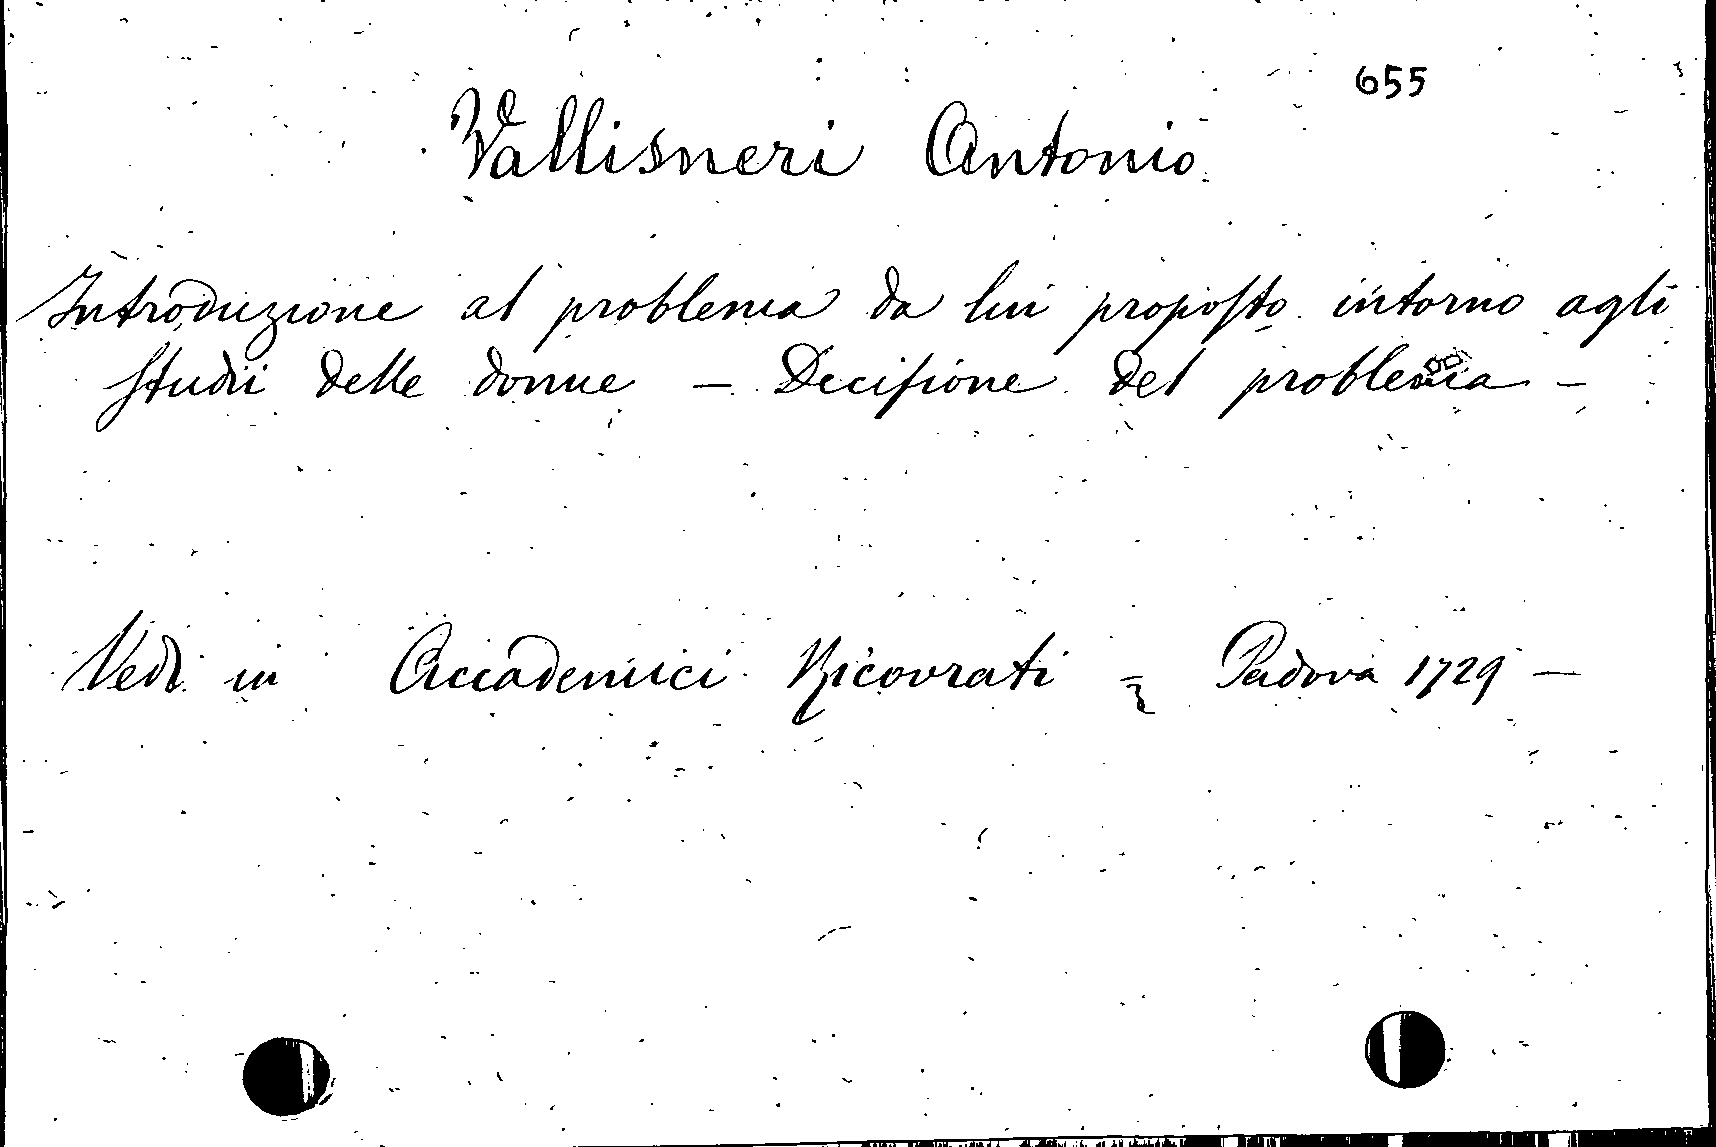 655
Vallisneri Antonio
Introduzione al problema da lui proposto intorno agli
studii delle donne — Decisione del problema —
Vedi in Accademici Ricovrati = Padova 1729 —